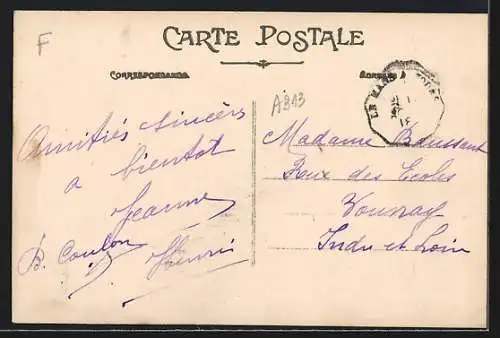 F
CARTE POSTALE
CORRESPONDANCE
A313
LE MANS
Amitiés sincères
a bientot
Jeanne
B. Coulon Henri
Madame Baussant
des Ecoles
Vouvray
Indre et Loire